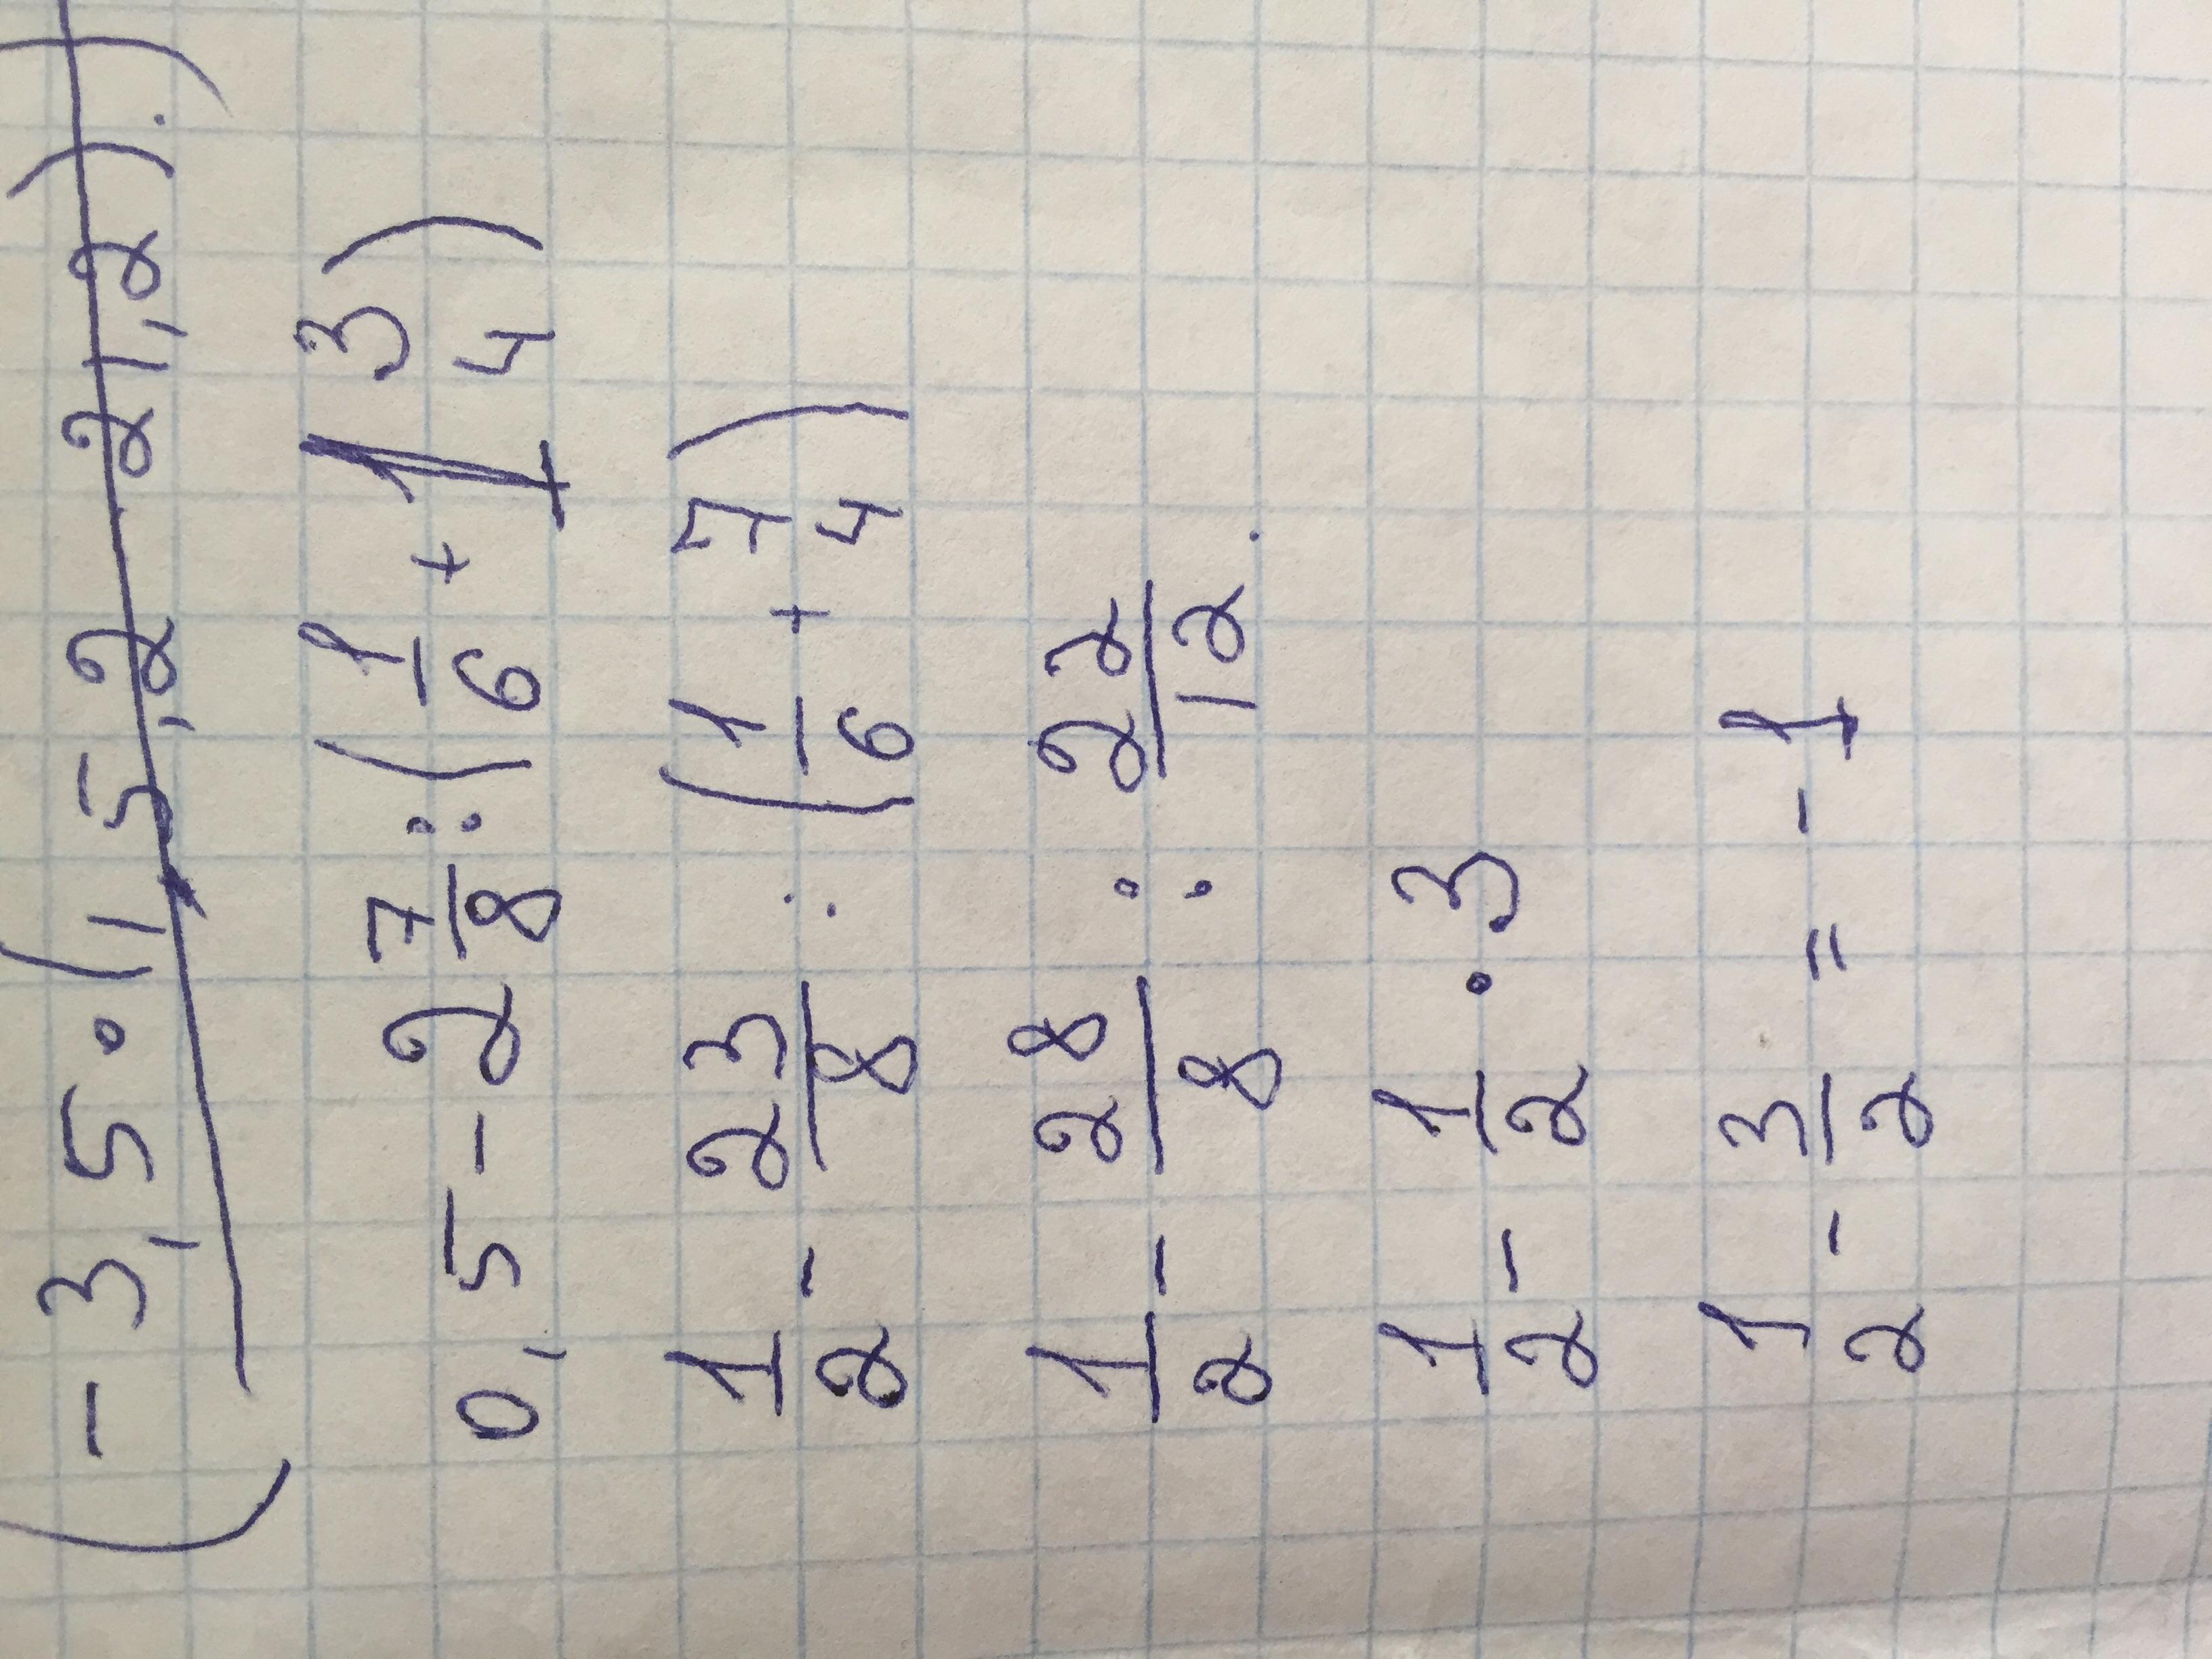 (-3,5·(15,2 - 21,2).)
0,5-2 7/8:(1/6+1 3/4)
1/2 - 23/8 : (1/6 + 7/4)
1/2 - 28/8 : 22/12.
1/2 - 1/2 · 3
1/2 - 3/2 = -1